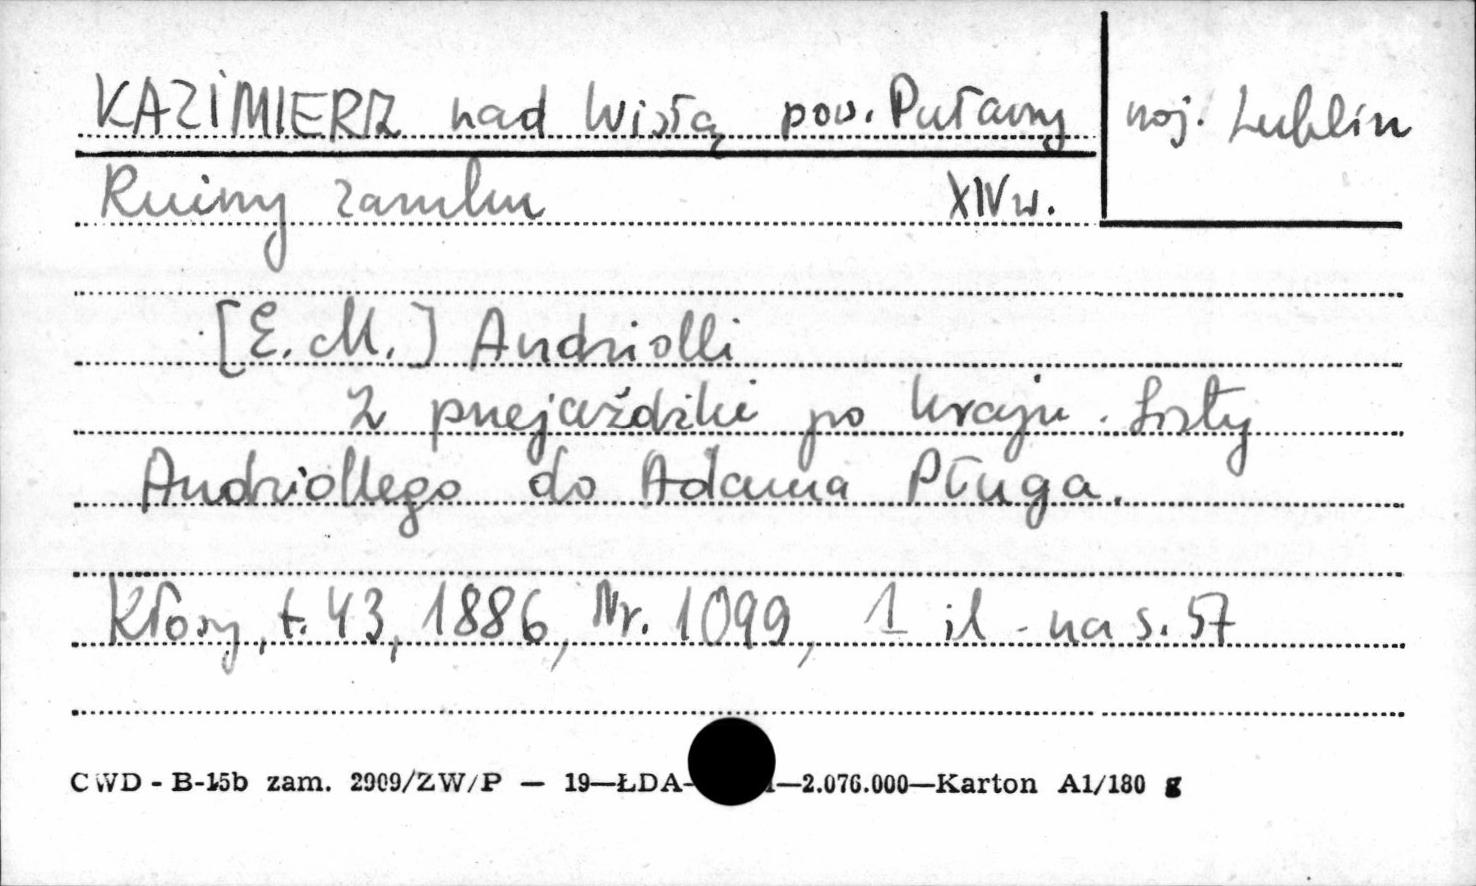 KAZIMIERZ nad Wisłą pow. Puławy
woj. Lublin
Ruiny zamku XIV w.
[E. M.] Andriolli
Z przejażdżki po kraju. Listy
Andriollego do Adama Pługa.
Kłosy, t. 43, 1886, Nr. 1099, 1 il. na s. 57
CWD - B-15b zam. 2909/ZW/P — 19—ŁDA- —2.076.000—Karton A1/180 g